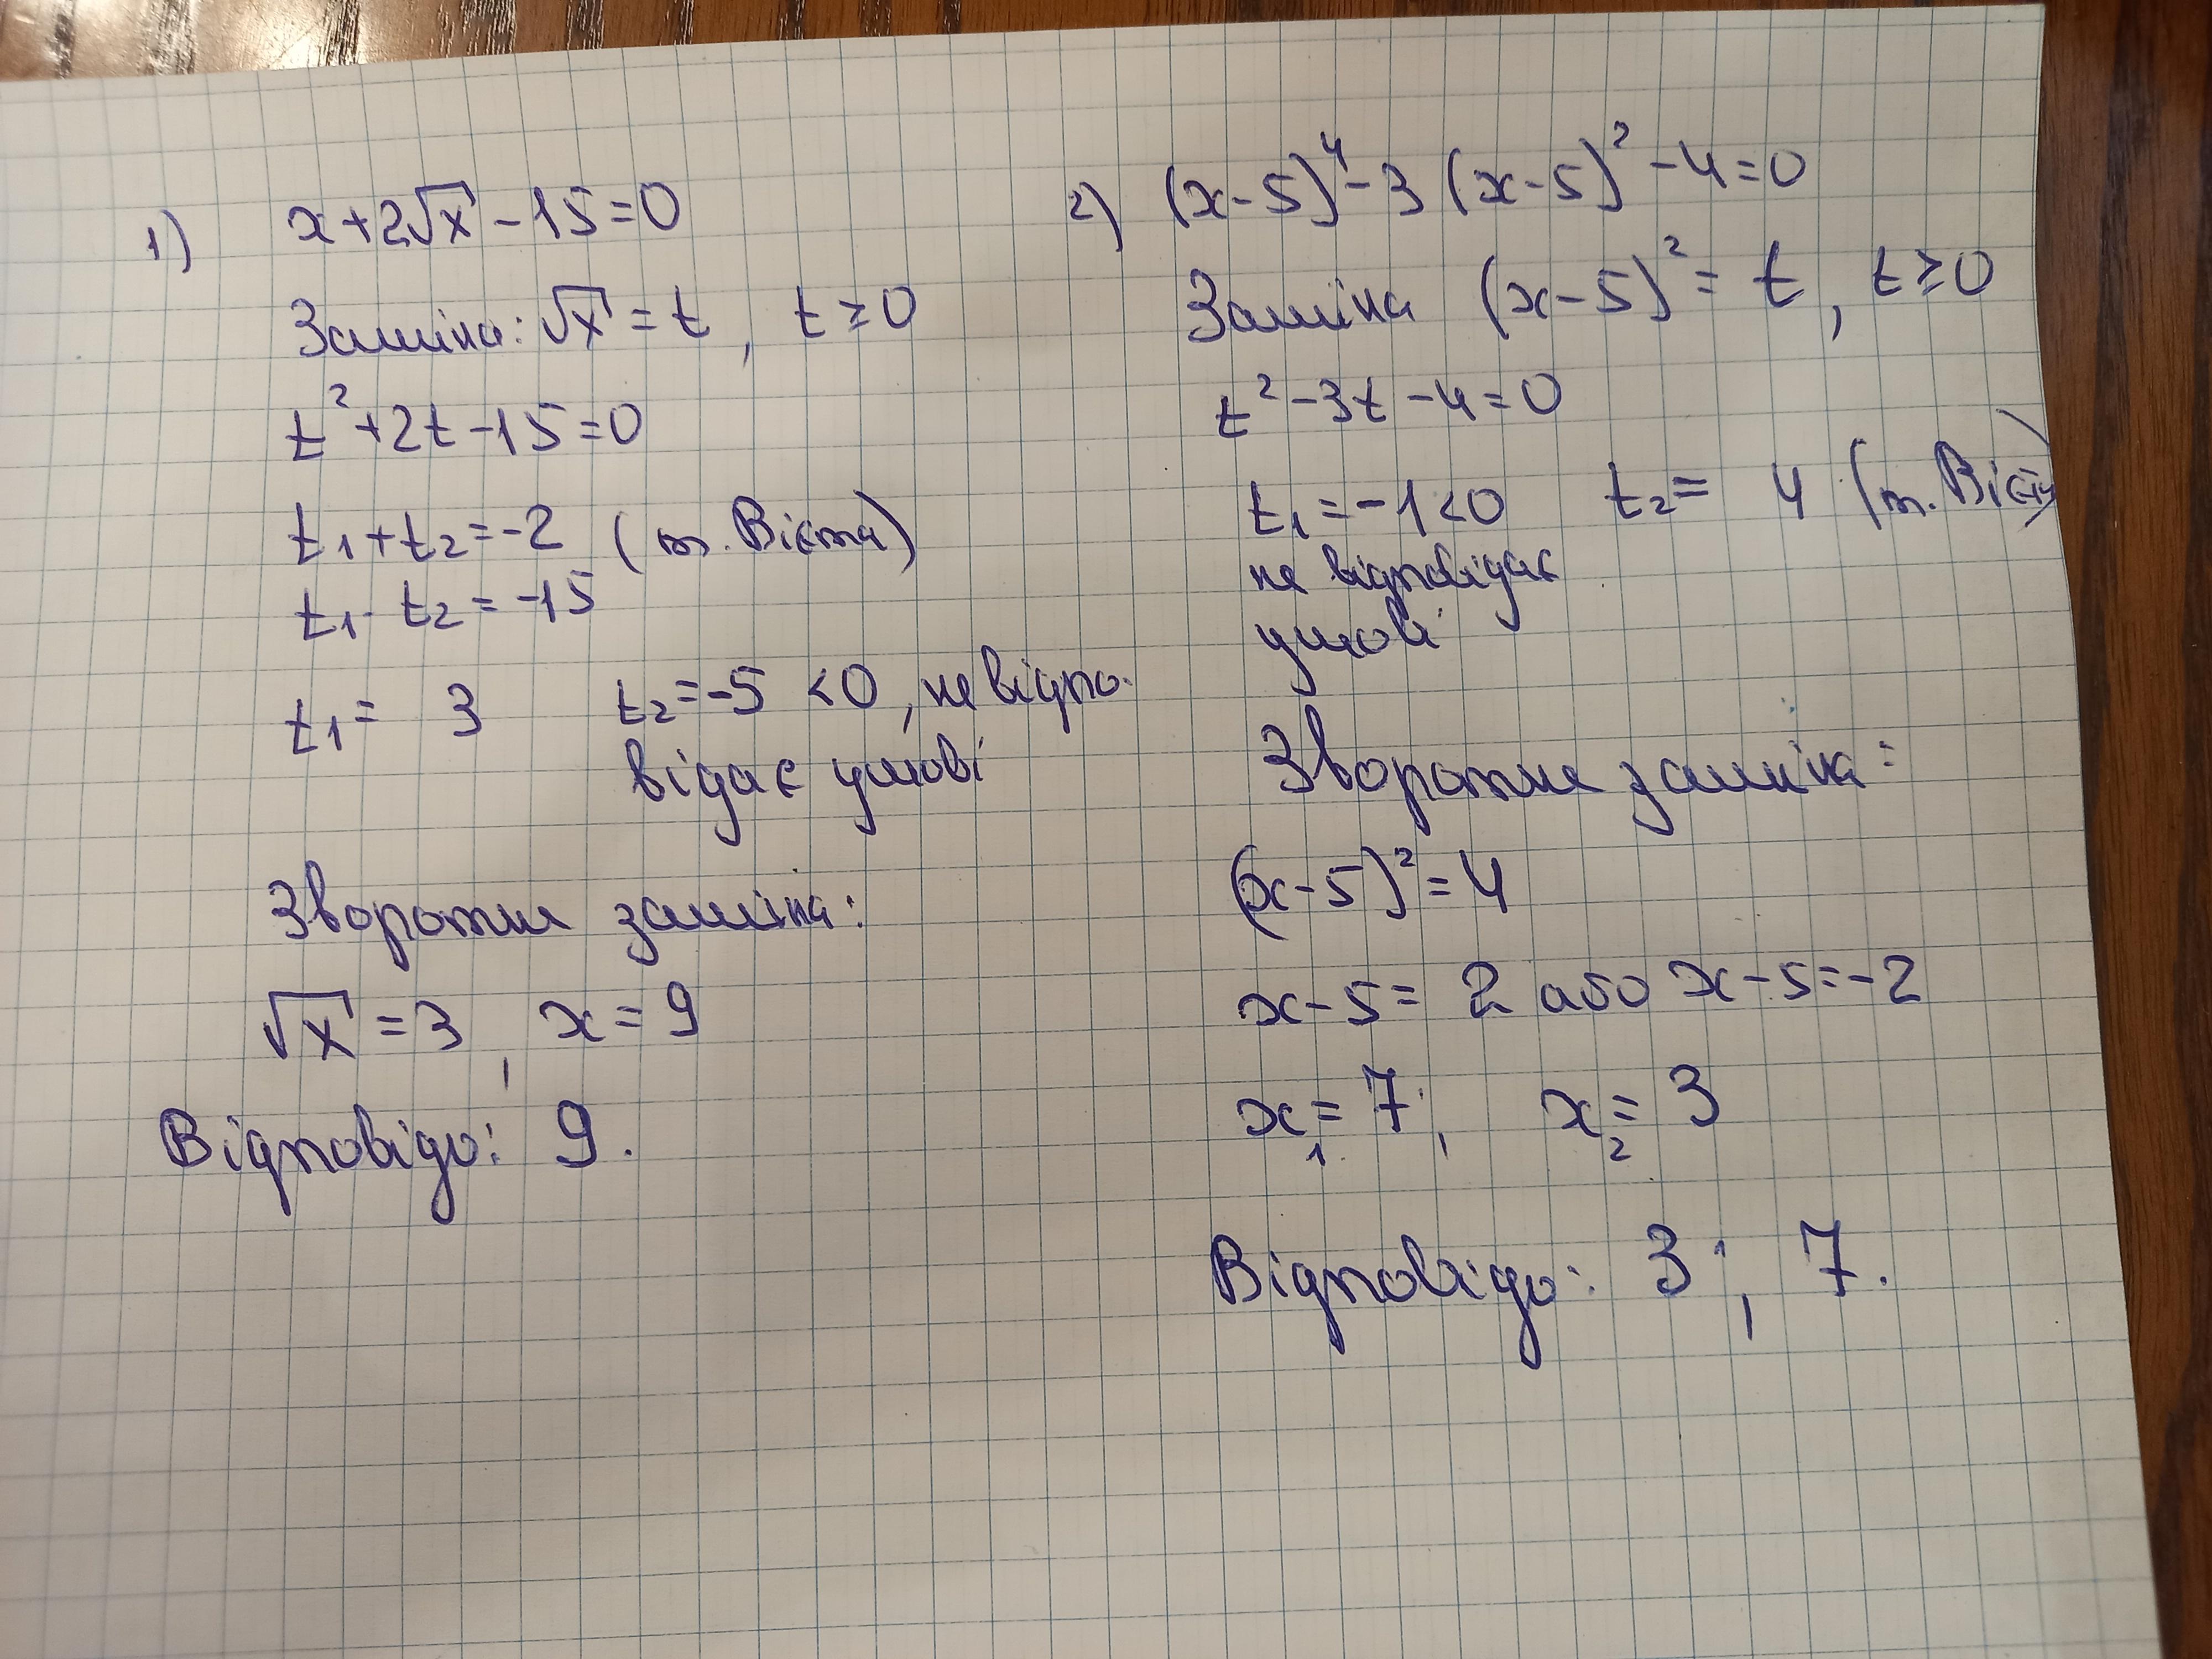 1) x+2√x-15=0
Заміна: √x=t, t≥0
t²+2t-15=0
t₁+t₂=-2 (т. Вієта)
t₁·t₂=-15
t₁= 3 t₂=-5<0, не відпо-
відає умові
Зворотня заміна:
√x=3, x=9
Відповідь: 9.
2) (x-5)⁴-3(x-5)²-4=0
Заміна (x-5)²=t, t≥0
t²-3t-4=0
t₁=-1<0 t₂= 4 (т. Вієта)
не відповідає
умові
Зворотня заміна:
(x-5)²=4
x-5= 2 або x-5=-2
x₁=7; x₂=3
Відповідь: 3; 7.